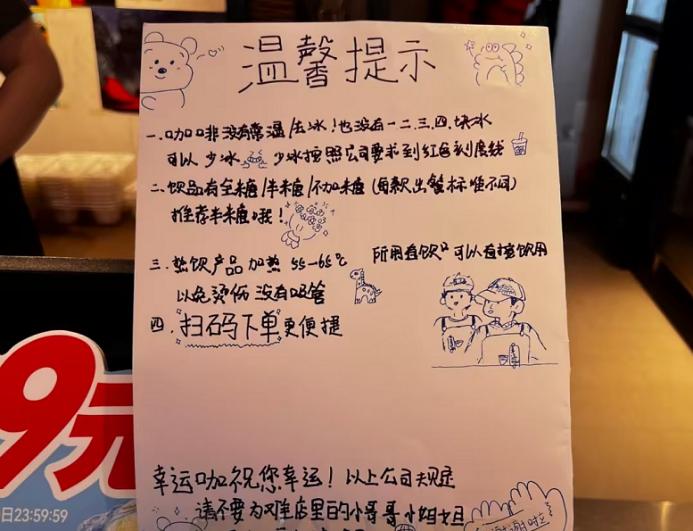 温馨提示
一.咖啡没有常温/去冰!也没有一二.三.四.块冰
可以少冰 少冰按照公司要求到红色刻度线
二.饮品有全糖/半糖/不加糖(每款出餐标准不同)
推荐半糖哦!
三.热饮产品加热 55-65℃ 所有热饮 可以直接饮用
以免烫伤 没有吸管
四.扫码下单更便捷
幸运咖祝您幸运!以上公司规定
请不要为难店里的小哥哥小姐姐
9元
日23:59:59